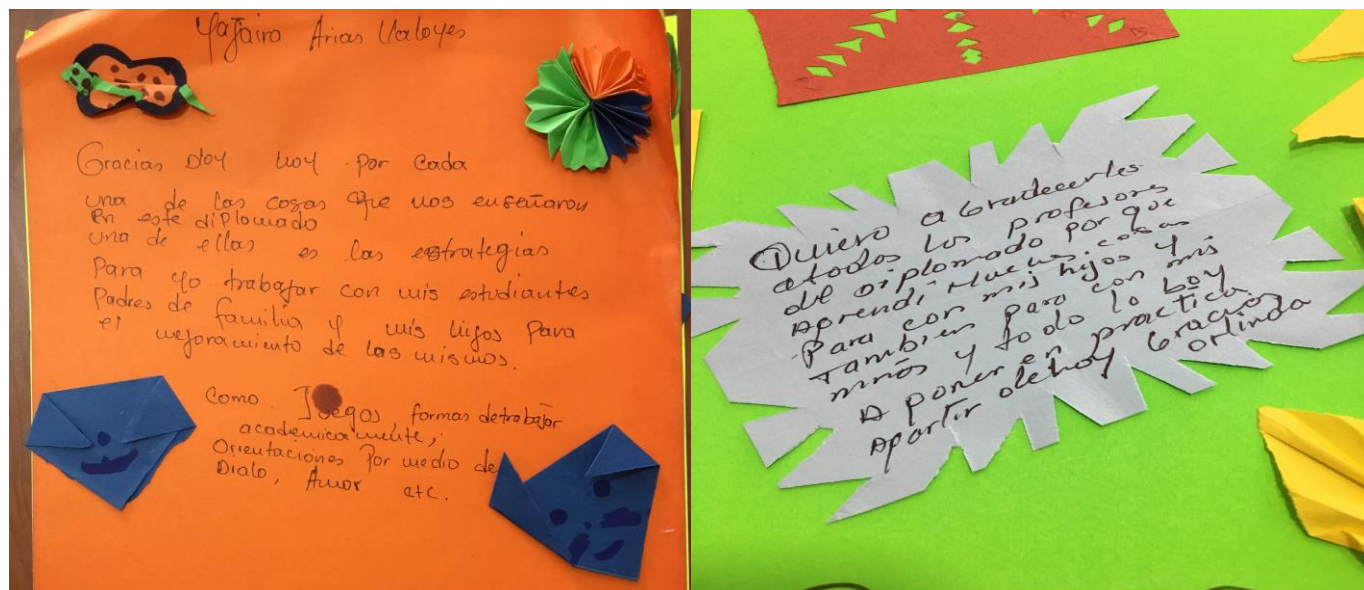 Yajaira Arias
Gracias Doy hoy por cada
una de las cosas que nos enseñaron
En este diplomado
una de ellas es las estrategias
Para yo trabajar con mis estudiantes
Padres de familia y mis hijos Para
el mejoramiento de los mismos.
Como Juegos formas detrabajar
academicamente,
Orientaciones Por medio de
Dialo, Amor etc.
Quiero a Gradecerles
atodos los profesores
del Diplomado por que
Aprendí Muchas cosas
Para con mis hijos y
Tambien para con mis
niños y todo lo boy
A poner en practica
Apartir dehoy Gracias
orlinda